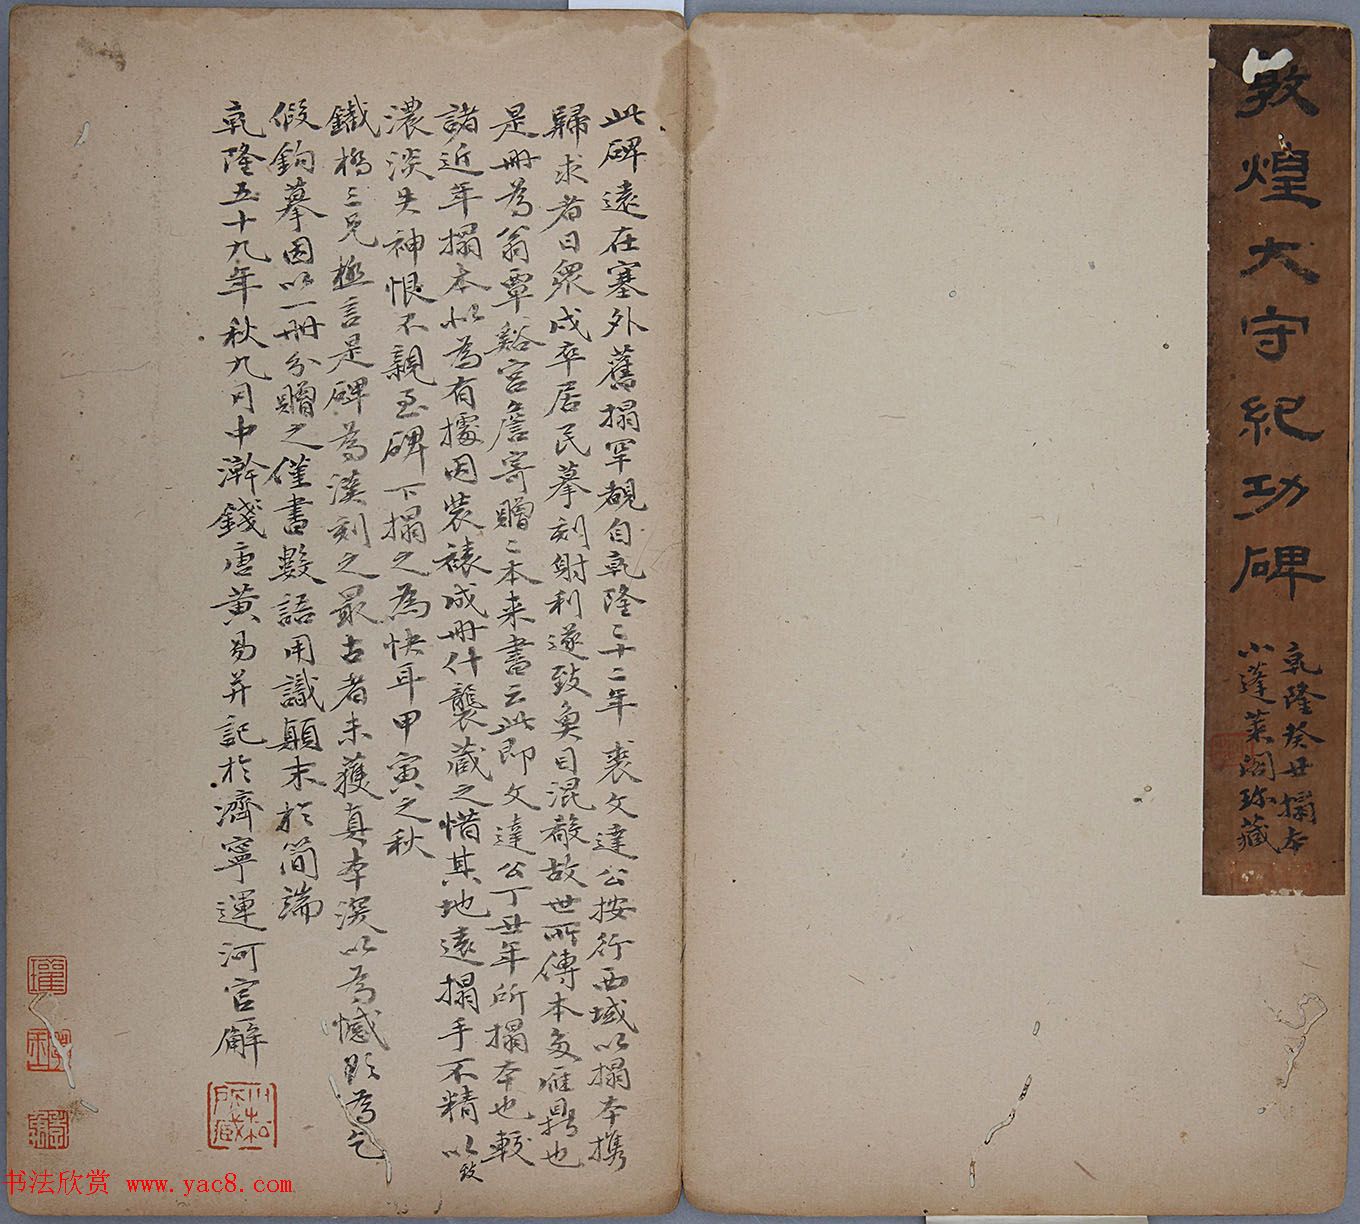 敦煌太守紀功碑
乾隆癸丑搨本
小蓬萊閣珍藏
此碑遠在塞外舊搨罕覩自乾隆二十二年裘文達公按行西域以搨本携
歸求者日衆戍卒居民摹刻射利遂致魚目混殽故世所傳本多雁鼎也
是冊為翁覃谿宮詹寄贈二本来書云此即文達公丁丑年所搨本也較
諸近年搨本似為有據因裝裱成冊什襲藏之惜其地遠搨手不精以致
濃淡失神恨不親至碑下搨之為快耳甲寅之秋
鐵橋三兄極言是碑為漢刻之最古者未獲真本深以為憾欣為乞
假鉤摹因以一冊分贈之僅書數語用識顛末於簡端
乾隆五十九年秋九月中澣錢唐黃易并記於濟寧運河官廨
書法欣赏 www.yac8.com